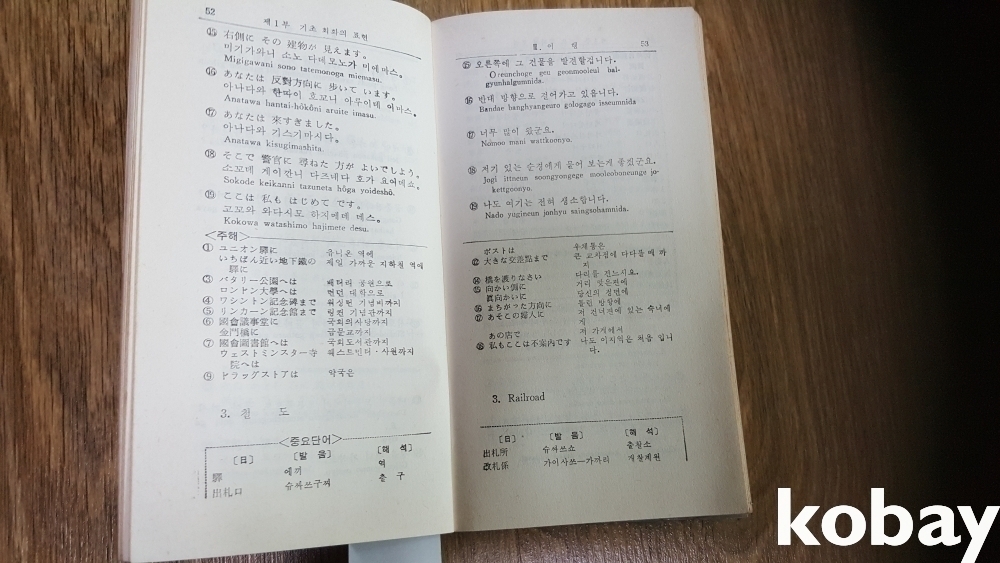 52
제 1 부 기초 회화의 표현
⑮ 右側に その 建物が 見えます。
미기가와니 소노 다데모노가 미에마스。
Migigawani sono tatemonoga miemasu.
⑯ あなたは 反對方向に 歩いて います。
아나다와 한따이 호고니 아루이데 이마스。
Anatawa hantai-hôkôni aruite imasu.
⑰ あなたは 來すぎました。
아나다와 기스기마시다。
Anatawa kisugimashita.
⑱ そこで 警官に 尋ねた 方が よいでしょう。
소꼬데 게이깐니 다즈네다 호가 요이데쇼。
Sokode keikanni tazuneta hôga yoideshô.
⑲ ここは 私も はじめて です。
고꼬와 와다시도 하지메데 데스。
Kokowa watashimo hajimete desu.
<주해>
① ユニオン驛に 유니온 역에
いちばん近い地下鐵の 제일 가까운 지하철 역에
驛に
③ バタリー公園へは 배터리 공원으로
ロンドン大學へは 런던 대학으로
④ ワシントン記念碑まで 워싱턴 기념비까지
⑤ リンカーン記念館まで 링컨 기념관까지
⑥ 國會議事堂に 국회의사당까지
金門橋に 금문교까지
⑦ 國會圖書館へは 국회도서관까지
ウェストミンスター寺 웨스트민터・사원까지
院へは
⑨ ドラッグストアは 약국은
3. 철 도
<중요단어>
[日] [발 음] [해 석]
驛 에끼 역
出札口 슈싸쓰구찌 출 구
53
⑮ 오른쪽에 그 건물을 발견할겁니다.
Oreunchoge geu geonmooleul hal-
gyunhalgumnida.
⑯ 반대 방향으로 걸어가고 있읍니다.
Bandae banghyangeuro gologago isseumnida
⑰ 너무 많이 왔군요.
Nomoo mani wattkoonyo.
⑱ 저기 있는 순경에게 물어 보는게 좋겠군요.
Jogi ittneun soongyongege mooleoboneunge jo-
kettgoonyo.
⑲ 나도 여기는 전혀 생소합니다.
Nado yugineun jonhyu saingsohamnida.
ポストは 우체통은
⑫ 大きな交差點まで 큰 교차점에 다다를 때 까
지
⑭ 橋を渡りなさい 다리를 건느시요.
⑮ 向かい側に 거리 맞은편에
眞向かいに 당신의 정면에
⑯ まちがった方向に 틀린 방향에
⑰ あそこの婦人に 저 건너저에 있는 숙녀에
게
あの店で 저 가게에서
⑱ 私もここは不案內です 나도 이지역은 처음 입니
다.
3. Railroad
[日] [발 음] [해 석]
出札所 슈싸쓰쇼 출찰소
改札係 가이사쓰—가까리 개찰계원
kobay